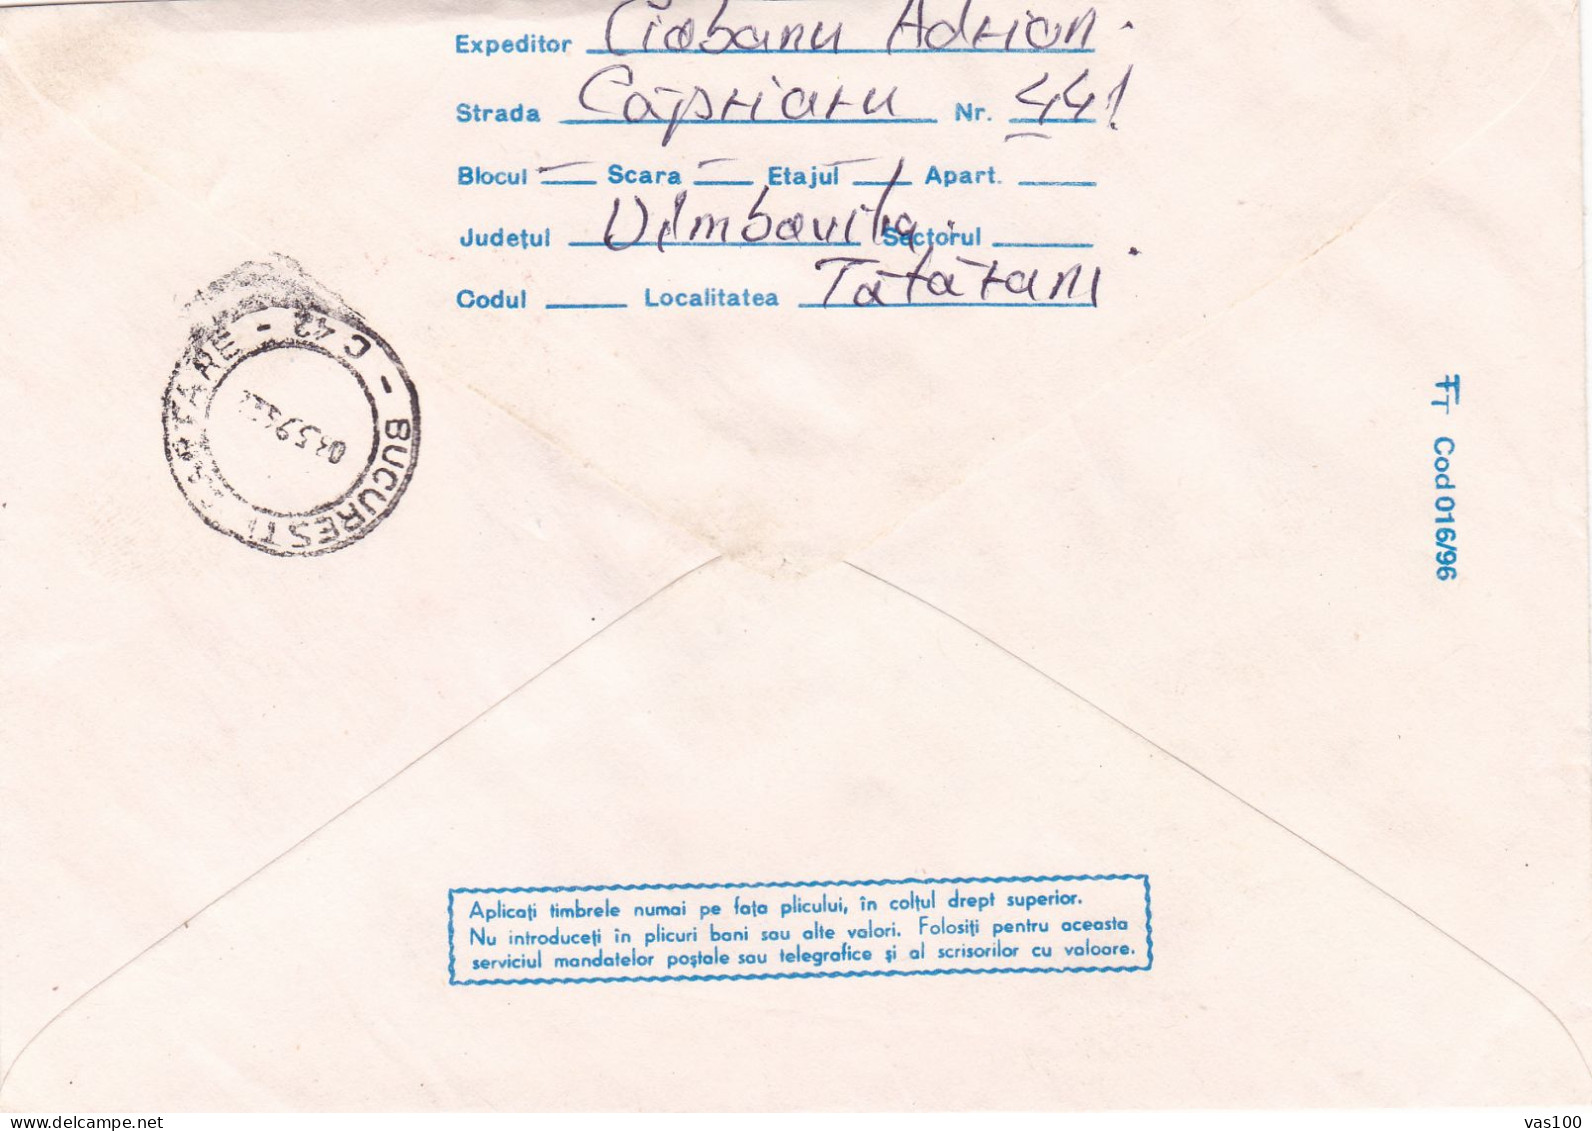 Expeditor Ciobanu Adrian.
Strada Căpriaru Nr. 441
Blocul — Scara — Etajul — Apart.
Județul Dîmbovița Sectorul
Codul Localitatea Tătărani
BUCUREȘTI CARTARE - C 42 -
FT Cod 016/96
Aplicați timbrele numai pe fața plicului, în colțul drept superior.
Nu introduceți în plicuri bani sau alte valori. Folosiți pentru aceasta
serviciul mandatelor poștale sau telegrafice și al scrisorilor cu valoare.
vas100